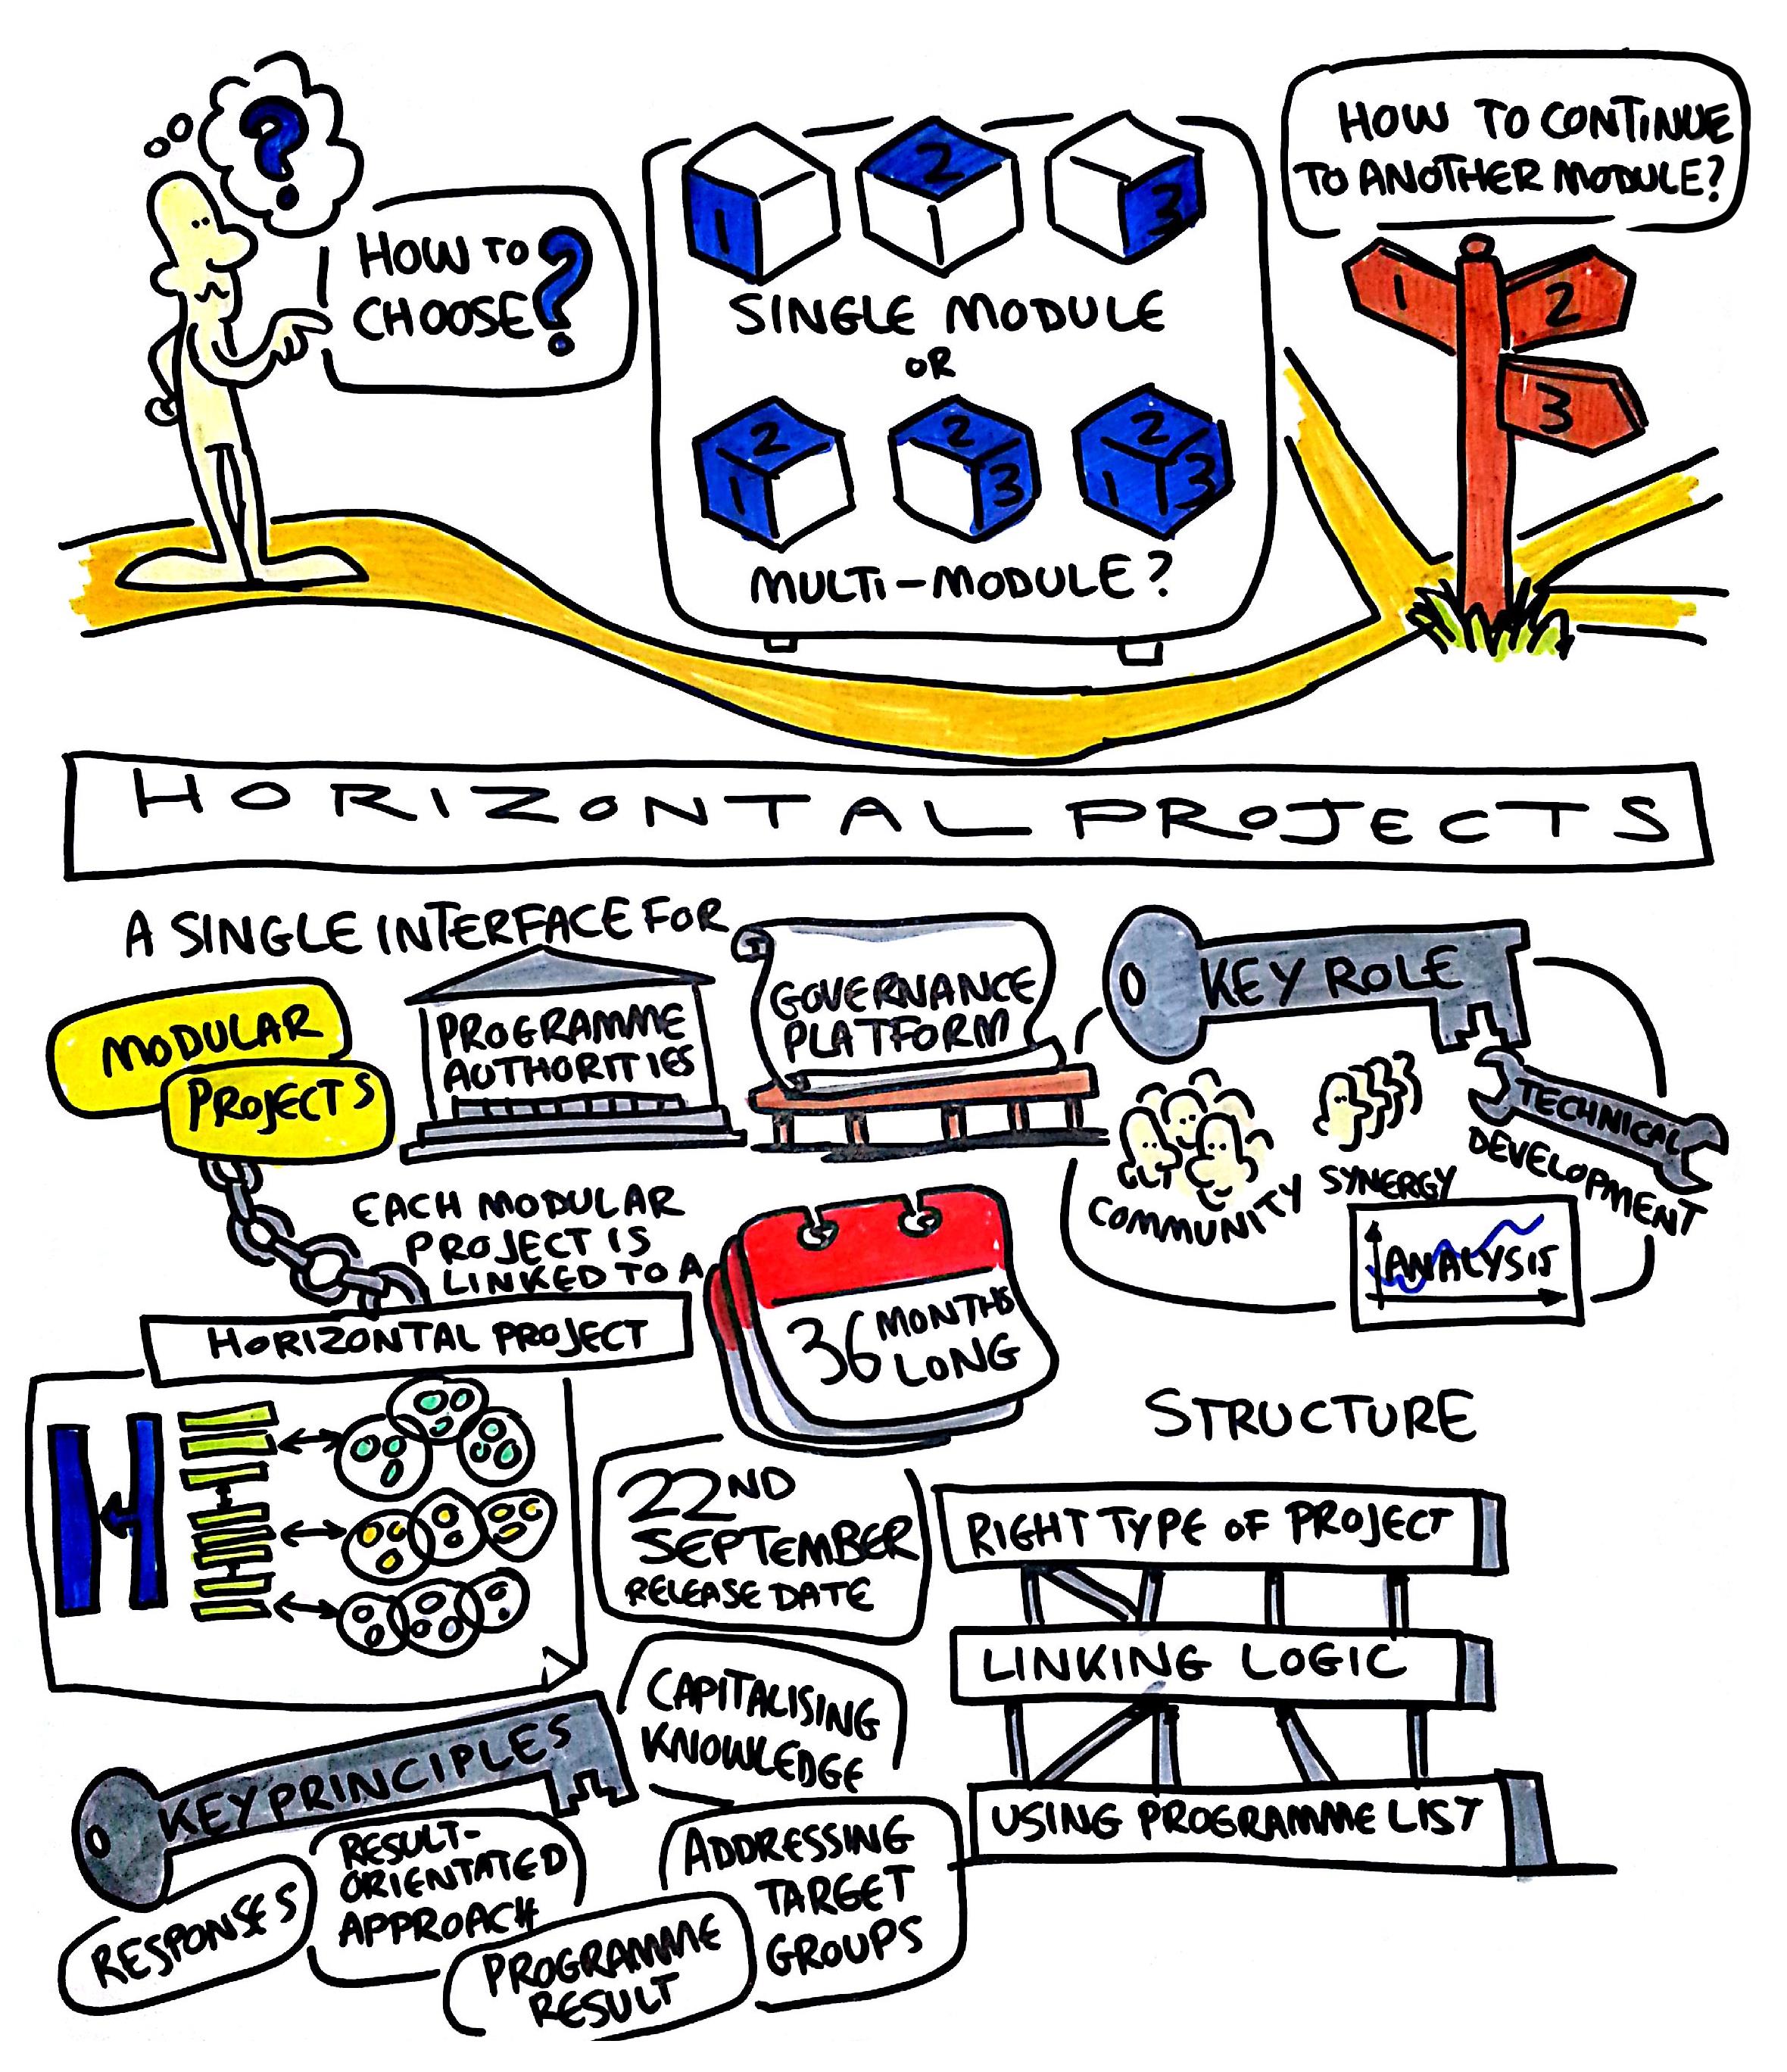 ?
HOW TO
CHOOSE?
1
2
1
3
SINGLE MODULE
OR
2
1
2
3
2
1
3
MULTI-MODULE?
HOW TO CONTINUE
TO ANOTHER MODULE?
1
2
3
HORIZONTAL PROJECTS
A SINGLE INTERFACE FOR
MODULAR
PROJECTS
PROGRAMME
AUTHORITIES
GOVERNANCE
PLATFORM
KEY ROLE
COMMUNITY
SYNERGY
TECHNICAL
DEVELOPMENT
ANALYSIS
EACH MODULAR
PROJECT IS
LINKED TO A
HORIZONTAL PROJECT
36 MONTHS
LONG
22ND
SEPTEMBER
RELEASE DATE
STRUCTURE
RIGHT TYPE OF PROJECT
LINKING LOGIC
USING PROGRAMME LIST
KEY PRINCIPLES
CAPITALISING
KNOWLEDGE
RESPONSES
RESULT-
ORIENTATED
APPROACH
PROGRAMME
RESULT
ADDRESSING
TARGET
GROUPS